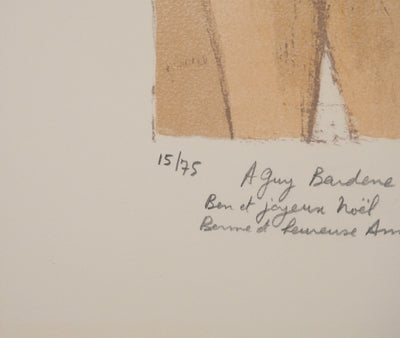 15/75
A Guy Bardene
Bon et joyeux Noël
Bonne et heureuse Ann